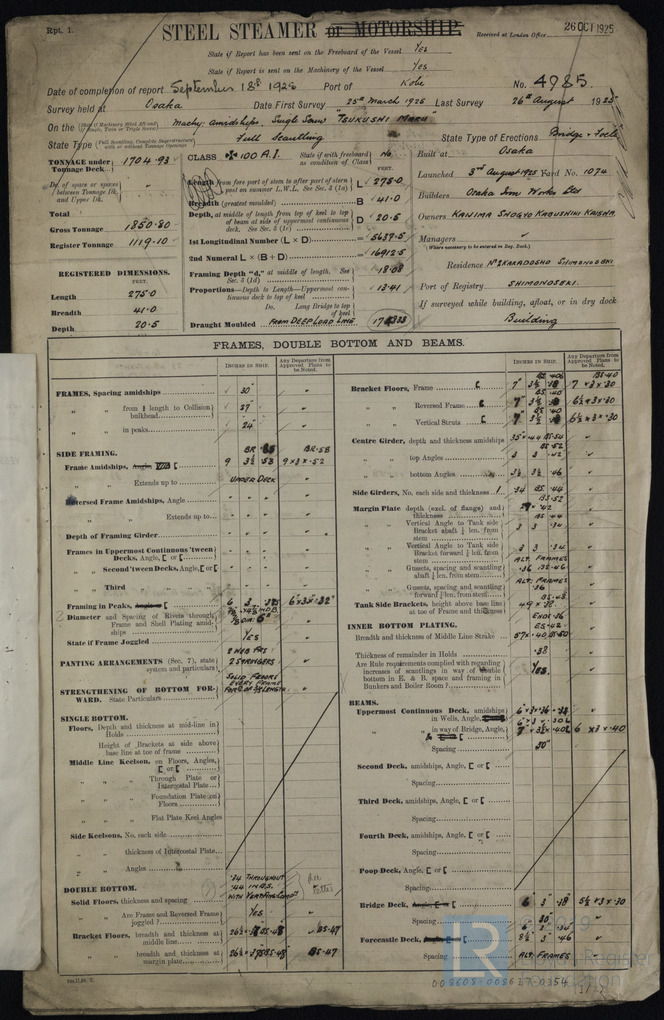 Rpt. 1.
STEEL STEAMER or MOTORSHIP.
Received at London Office
26 OCT 1925
State if Report has been sent on the Freeboard of the Vessel Yes
State if Report is sent on the Machinery of the Vessel Yes
Date of completion of report September 18th 1925 Port of Kobe No. 4985
Survey held at Osaka Date First Survey 25th March 1925 Last Survey 26th August 1925
On the Machy. amidships. Single Screw "TSUKUSHI MARU"
State Type Full Scantling State Type of Erections Bridge & Focle
TONNAGE under Tonnage Deck 1704.93
Do. of space or spaces between Tonnage Dk. and Upper Dk.
Total
Gross Tonnage 1850.80
Register Tonnage 1119.10
REGISTERED DIMENSIONS.
FEET.
Length 275.0
Breadth 41.0
Depth 20.5
CLASS ✠ 100 A.I. State if with freeboard as condition of Class No
FEET.
Length from fore part of stem to after part of stern post on summer L.W.L. See Sec. 3 (1a) L 275.0
Breadth (greatest moulded) B 41.0
Depth, at middle of length from top of keel to top of beam at side of uppermost continuous deck. See Sec. 3 (1c) D 20.5
1st Longitudinal Number (L × D) = 5637.5
2nd Numeral L × (B + D) = 16912.5
Framing Depth "d," at middle of length. See Sec. 3 (1d) 18.08
Proportions—Depth to Length—Uppermost continuous deck to top of keel 13.41
Do. Long Bridge to top of keel
Draught Moulded FROM DEEP LOAD LINE
Built at Osaka
Launched 3rd August 1925 Yard No. 1074
Builders Osaka Iron Works Ltd
Owners KAWIMA SHOGYO KABUSHIKI KAISHA
Managers
(Where necessary to be entered in Reg. Book.)
Residence No 2 KARADOSHO SHIMONOSEKI
Port of Registry SHIMONOSEKI.
If surveyed while building, afloat, or in dry dock
Building
FRAMES, DOUBLE BOTTOM AND BEAMS.
INCHES IN SHIP.
Any Departure from Approved Plans to be Noted.
FRAMES, Spacing amidships 30"
" " from 1/5 length to Collision bulkhead 27"
" " in peaks 24"
SIDE FRAMING.
Frame Amidships, Angle 9 3½ .53 9 × 3 × .52
" " Extends up to UPPER DECK
Reversed Frame Amidships, Angle
" " Extends up to
Depth of Framing Girder
Frames in Uppermost Continuous 'tween Decks, Angle, [ or [
" Second 'tween Decks, Angle, [ or [
" Third " "
Framing in Peaks, Angle or [ 6 3 6 × 3 × .32"
Diameter and Spacing of Rivets through Frame and Shell Plating amidships
State if Frame Joggled YES
PANTING ARRANGEMENTS (Sec. 7), state system and particulars 2 WEB FRS 2 STRINGERS
STRENGTHENING OF BOTTOM FORWARD. State Particulars SOLID FLOORS EVERY FRAME
SINGLE BOTTOM.
Floors, Depth and thickness at mid-line in Holds
Height of Brackets at side above base line at toe of frame
Middle Line Keelson, on Floors, Angles, [ or [
" " Through Plate or Intercostal Plate
" " Foundation Plate on Floors
" " Flat Plate Keel Angles
Side Keelsons, No. each side
" " thickness of Intercostal Plate
" " Angles
DOUBLE BOTTOM.
Solid Floors, thickness and spacing .34 THROUGHOUT .44 IN B.S.
" " Are Frame and Reversed Frame joggled? YES
Bracket Floors, breadth and thickness at middle line BS.47
" " breadth and thickness at margin plate BS.47
See letter
INCHES IN SHIP.
Any Departure from Approved Plans to be Noted.
Bracket Floors, Frame 7" 3½ BS.40 7 × 3 × .30
" " Reversed Frame 7" 3½ 6½ × 3 × .30
" " Vertical Struts 7" 3½ 6½ × 3 × .30
Centre Girder, depth and thickness amidships 35 × .44 BS.54
" " top Angles 3 3 .42
" " bottom Angles 3½ 3½ .46
Side Girders, No. each side and thickness 1 .34 BS .44
Margin Plate depth (excl. of flange) and thickness
" " Vertical Angle to Tank side Bracket abaft ¼ len. from stem 3 3 .34
" " Vertical Angle to Tank side Bracket forward ¼ len. from stem 3 3 .34
" " Gussets, spacing and scantling abaft ¼ len. from stem ALT. FRAMES .36
" " Gussets, spacing and scantling forward ¼ len. from stem ALT. FRAMES .36
Tank Side Brackets, height above base line at toe of Frame and thickness 49 × .38
INNER BOTTOM PLATING.
Breadth and thickness of Middle Line Strake 57 × .40 BS.50
Thickness of remainder in Holds .38
Are Rule requirements complied with regarding increases of scantlings in way of double bottom in E. & B. space and framing in Bunkers and Boiler Room? YES.
BEAMS.
Uppermost Continuous Deck, amidships in Wells, Angle
" " in way of Bridge, Angle, 6 × 3 × .40
Spacing 30"
Second Deck, amidships, Angle, [ or [
Spacing
Third Deck, amidships, Angle, [ or [
Spacing
Fourth Deck, amidships, Angle, [ or [
Spacing
Poop Deck, Angle, [ or [
Spacing
Bridge Deck, Angle, [ or [ 6" 3" .38 5½ × 3 × .30
Spacing 30"
Forecastle Deck, Angle, [ or [ 8½ 3" .46
Spacing ALT. FRAMES
LR
© 2019
Lloyd's Register Foundation
008605-008617-0354